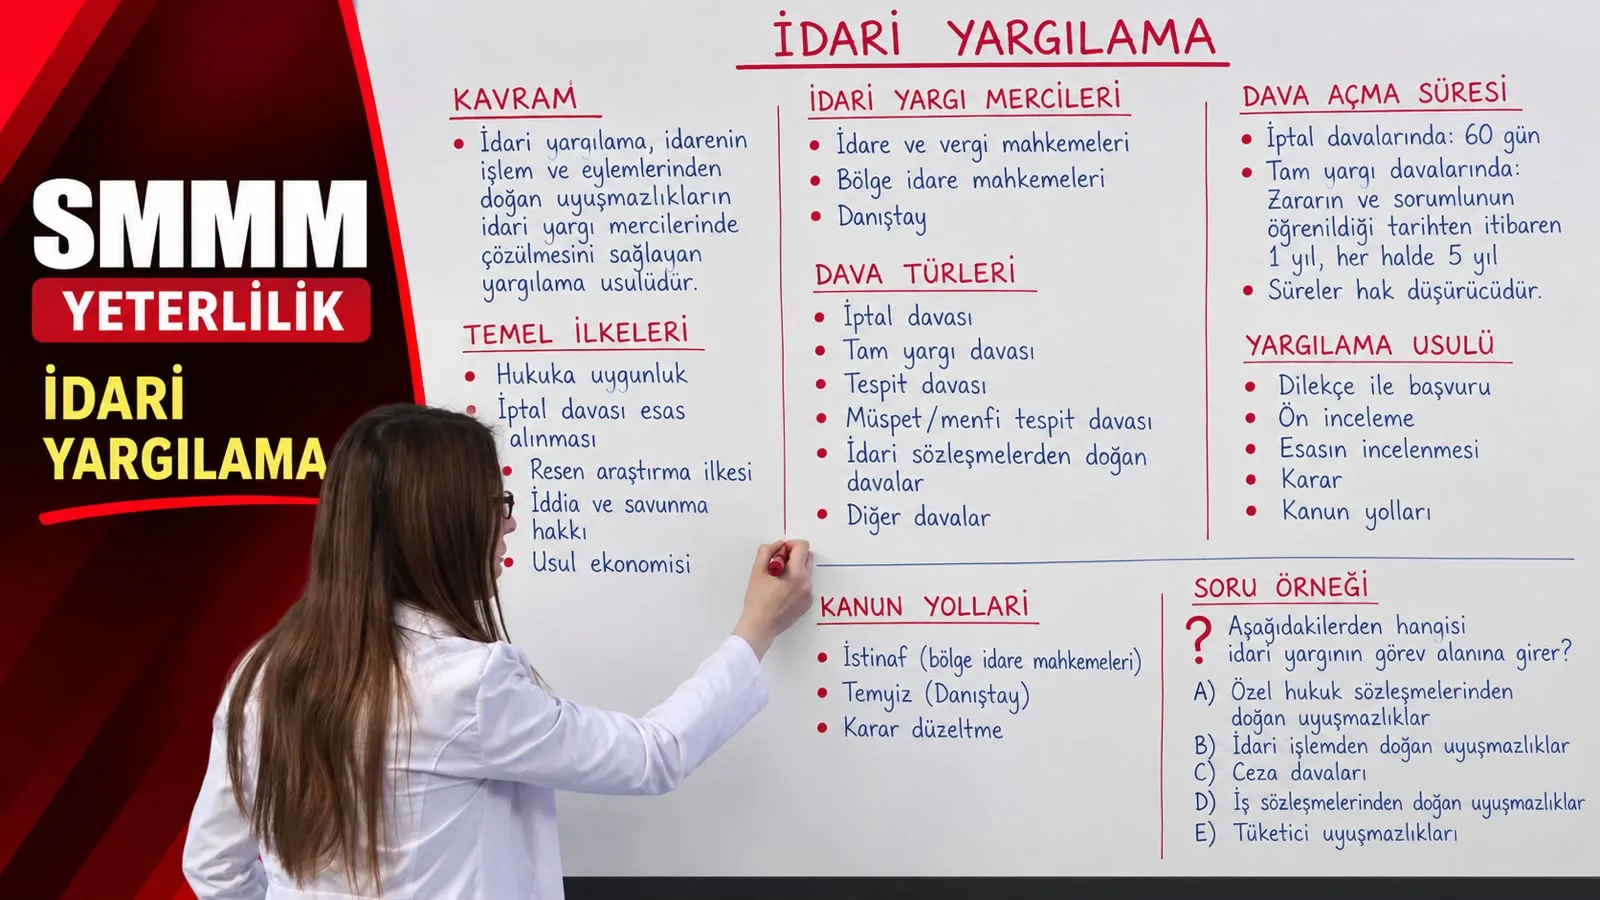 SMMM
YETERLİLİK
İDARİ
YARGILAMA
İDARİ YARGILAMA
KAVRAM
• İdari yargılama, idarenin
işlem ve eylemlerinden
doğan uyuşmazlıkların
idari yargı mercilerinde
çözülmesini sağlayan
yargılama usulüdür.
TEMEL İLKELERİ
• Hukuka uygunluk
• İptal davası esas
alınması
• Resen araştırma ilkesi
• İddia ve savunma
hakkı
• Usul ekonomisi
İDARİ YARGI MERCİLERİ
• İdare ve vergi mahkemeleri
• Bölge idare mahkemeleri
• Danıştay
DAVA TÜRLERİ
• İptal davası
• Tam yargı davası
• Tespit davası
• Müspet/menfi tespit davası
• İdari sözleşmelerden doğan
davalar
• Diğer davalar
DAVA AÇMA SÜRESİ
• İptal davalarında: 60 gün
• Tam yargı davalarında:
Zararın ve sorumlunun
öğrenildiği tarihten itibaren
1 yıl, her halde 5 yıl
• Süreler hak düşürücüdür.
YARGILAMA USULÜ
• Dilekçe ile başvuru
• Ön inceleme
• Esasın incelenmesi
• Karar
• Kanun yolları
KANUN YOLLARİ
• İstinaf (bölge idare mahkemeleri)
• Temyiz (Danıştay)
• Karar düzeltme
SORU ÖRNEĞİ
? Aşağıdakilerden hangisi
idari yargının görev alanına girer?
A) Özel hukuk sözleşmelerinden
doğan uyuşmazlıklar
B) İdari işlemden doğan uyuşmazlıklar
C) Ceza davaları
D) İş sözleşmelerinden doğan uyuşmazlıklar
E) Tüketici uyuşmazlıkları